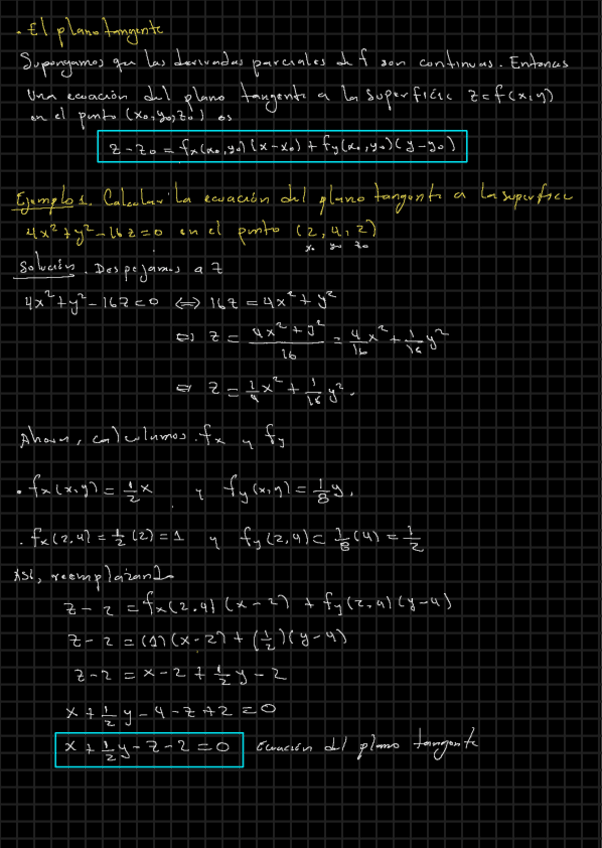 • El plano tangente
Supongamos que las derivadas parciales de f son continuas. Entonces
una ecuación del plano tangente a la superficie z=f(x,y)
en el punto (x₀,y₀,z₀) es
z-z₀ = fx(x₀,y₀)(x-x₀) + fy(x₀,y₀)(y-y₀)
Ejemplo 1. Calcular la ecuación del plano tangente a la superficie
4x²+y²-16z=0 en el punto (2,4,2)
x₀ y₀ z₀
Solución. Despejamos a z
4x²+y²-16z=0 ⇔ 16z = 4x²+y²
⇔ z = (4x²+y²)/16 = 4/16 x² + 1/16 y²
⇔ z = 1/4 x² + 1/16 y².
Ahora, calculamos fx y fy
• fx(x,y) = 1/2 x y fy(x,y) = 1/8 y.
. fx(2,4) = 1/2 (2) = 1 y fy(2,4) = 1/8 (4) = 1/2
Así, reemplazando
z-2 = fx(2,4)(x-2) + fy(2,4)(y-4)
z-2 = (1)(x-2) + (1/2)(y-4)
z-2 = x-2 + 1/2 y - 2
x + 1/2 y - 4 - z + 2 = 0
x + 1/2 y - z - 2 = 0 Ecuación del plano tangente